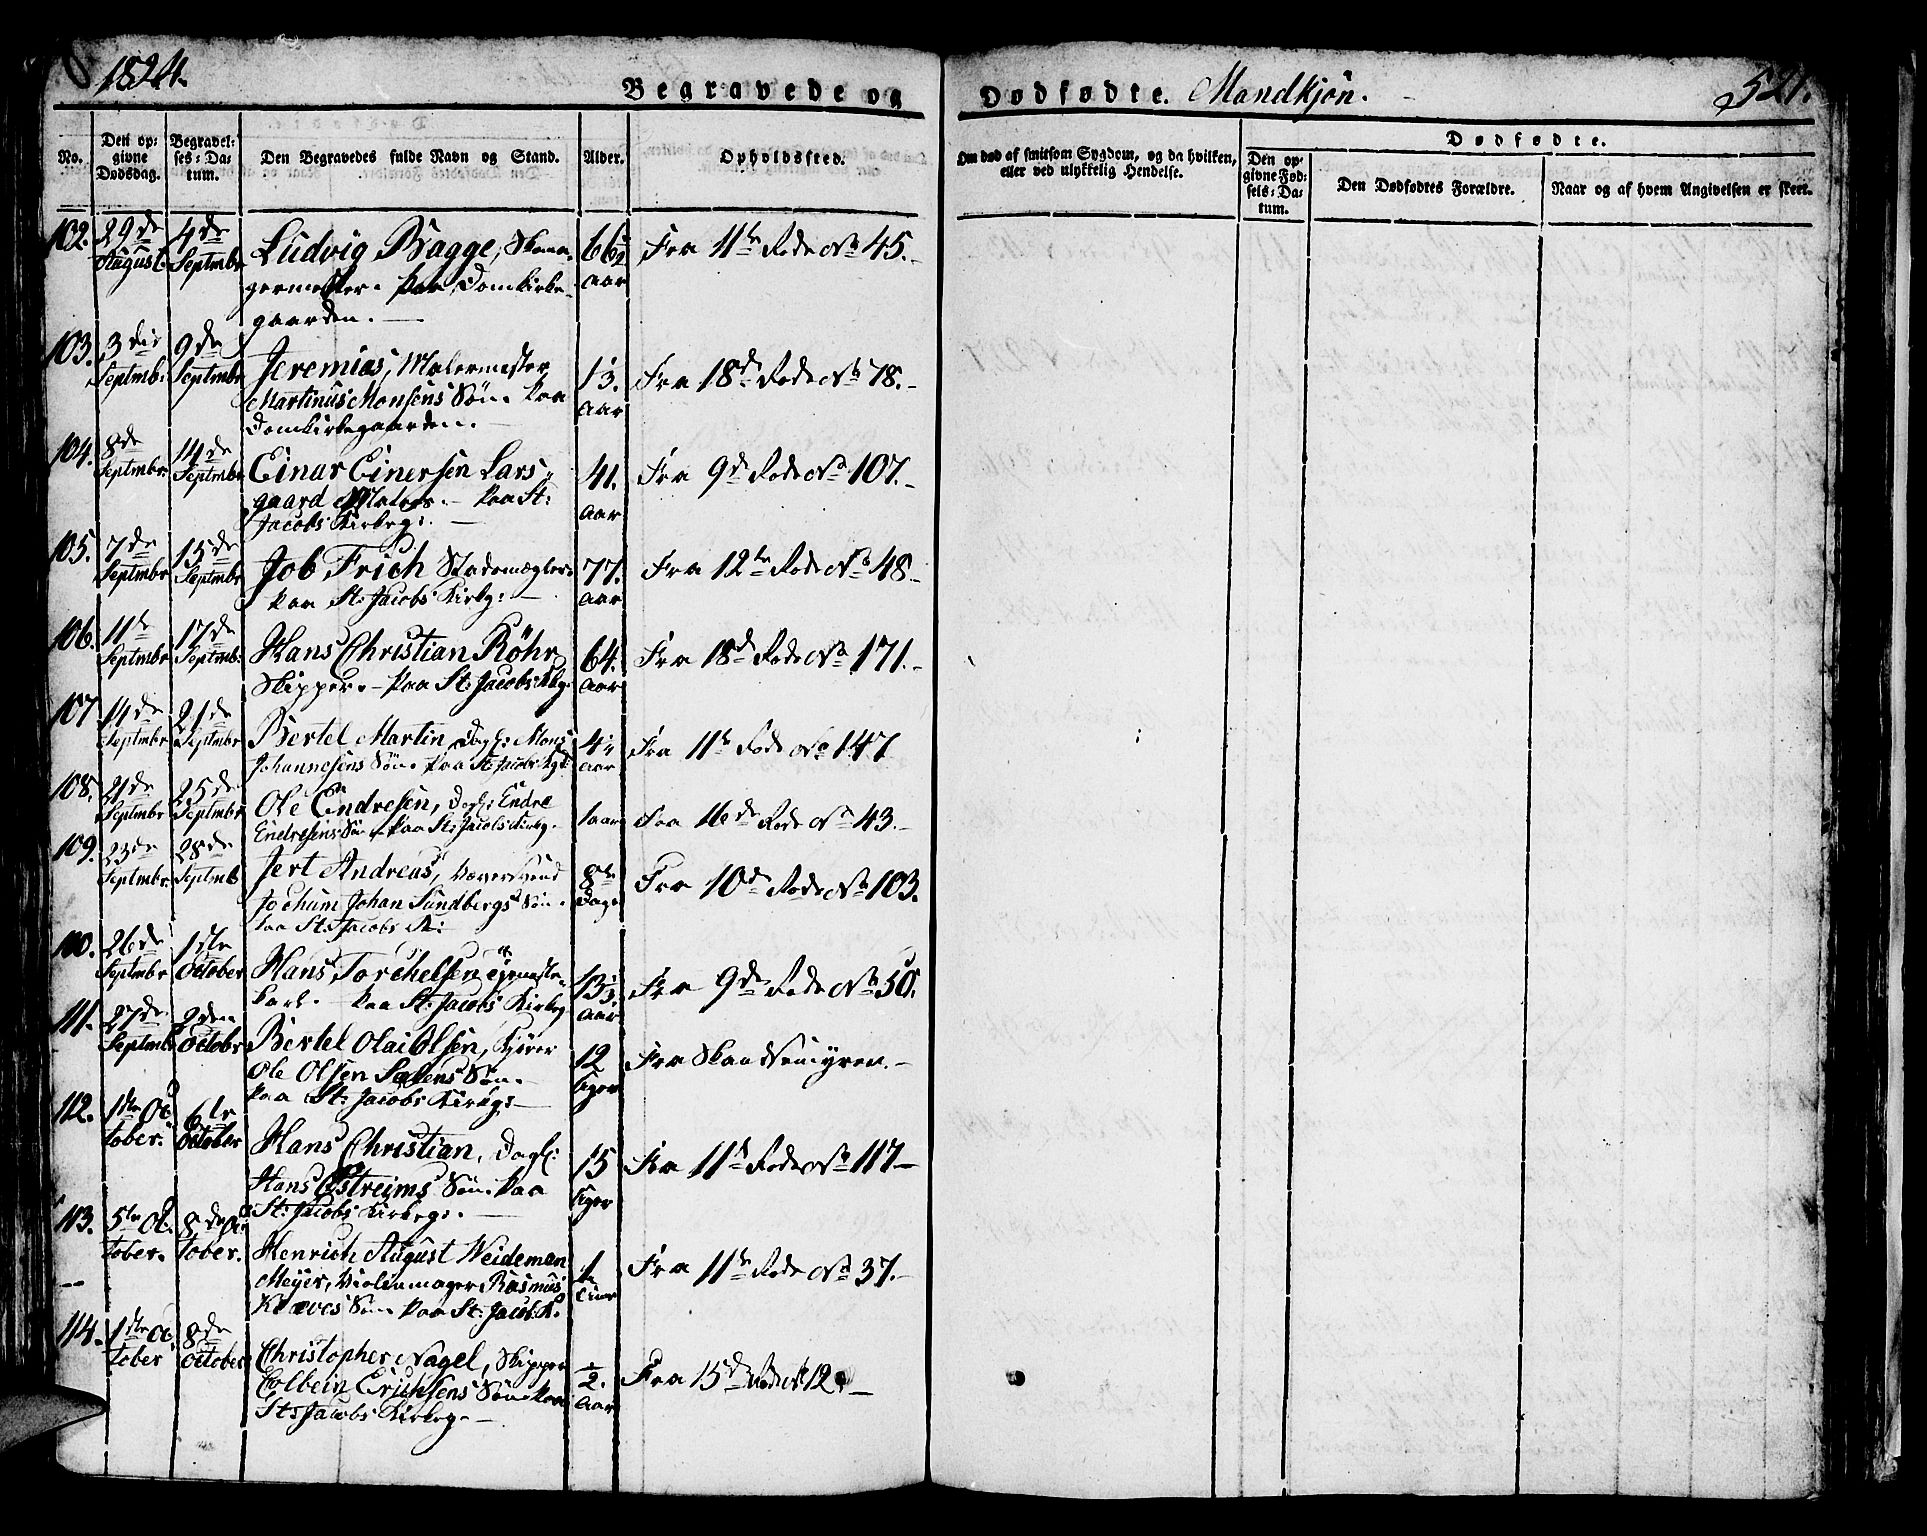 1824.
Begravede og
Dødfødte. Mandkjøn.
521.
No.
Den op-
givne
Dødsdag.
Begravel-
ses-Da-
tum.
Den Begravedes fulde Navn og Stand.
Alder.
Opholdssted.
Om død af smitsom Sygdom, og da hvilken,
eller ved ulykkelig Hendelse.
Dødfødte.
Den op-
givne Fød-
sels-Da-
tum.
Den Dødfødtes Forældre.
Naar og af hvem Angivelsen er skeet.
102. 29de August. 4de Septmbr Ludvig Bagge, 66½ Aar Fra 11te Rode No 45.
germester. Paa Domkirke-
gaarden.
103. 3die Septmbr 9de Septmbr Jeremias, Malermester 13. Aar Fra 18de Rode No 78.
Martinus Monsens Søn. Paa
Domkirkegaarden.
104. 8de Septmbr 14de Septmbr Einar Einersen Lars- 41. Aar Fra 9de Rode No 107.
gaard Paa St:
Jacobs Kirkeg:
105. 7de Septmbr 15de Septmbr Job Frich Stadsmægler. 77. Aar Fra 12te Rode No 48
Paa St: Jacobs Kirkg:
106. 11te Septmbr 17de Septmb: Hans Christian Röhr 64. Aar Fra 18de Rode No 171.
Skipper. Paa St: Jacobs Kkg.
107 14de Septmbr 21de Septmbr Bertel Martin, Dagl: Mons Aar Fra 11te Rode No 147
Johannesens Søn. Paa St: Jacobs Kg:
108. 21de Septmbr 25de Septmbr Ole Endresen, Dagl: Endre 1 aar Fra 16de Rode No 43.
Endresens Søn Paa St: Jacobs Kirkg.
109. 23de Septmbr 28de Septmb Jert Andreas, 8te Dage Fra 10de Rode No 103.
Jochum Johan Sundbergs Søn.
Paa St: Jacobs K:
110. 26de Septmbr 1ste October Hans Torchelsen, Tjeneste- 13½ Aar Fra 9de Rode No 50.
karl. Paa St: Jacobs Kirkeg
111. 27de Septmbr 2den Octobr Bertel Olai Olsen, Kjører 12 Uger Fra Skandsemyren.
Ole Olsen Søn.
Paa St: Jacobs Kirkg:
112. 1ste October. 6te October Hans Christian, Dagl: 15 Uger Fra 11te Rode No 117
Hans Østreims Søn. Paa
St: Jacobs Kirkeg.
113. 5te October. 8de October. Henrich August Weideman Fra 11te Rode No 37.
Meyer, Violinmager Rasmus
Søn Paa St: Jacob: K.
114. 1ste October 8de October Christopher Nagel, Skipper ½ Aar Fra 15de Rode No 12
Colbein Erichsens Søn. Paa
St: Jacobs Kirkeg.